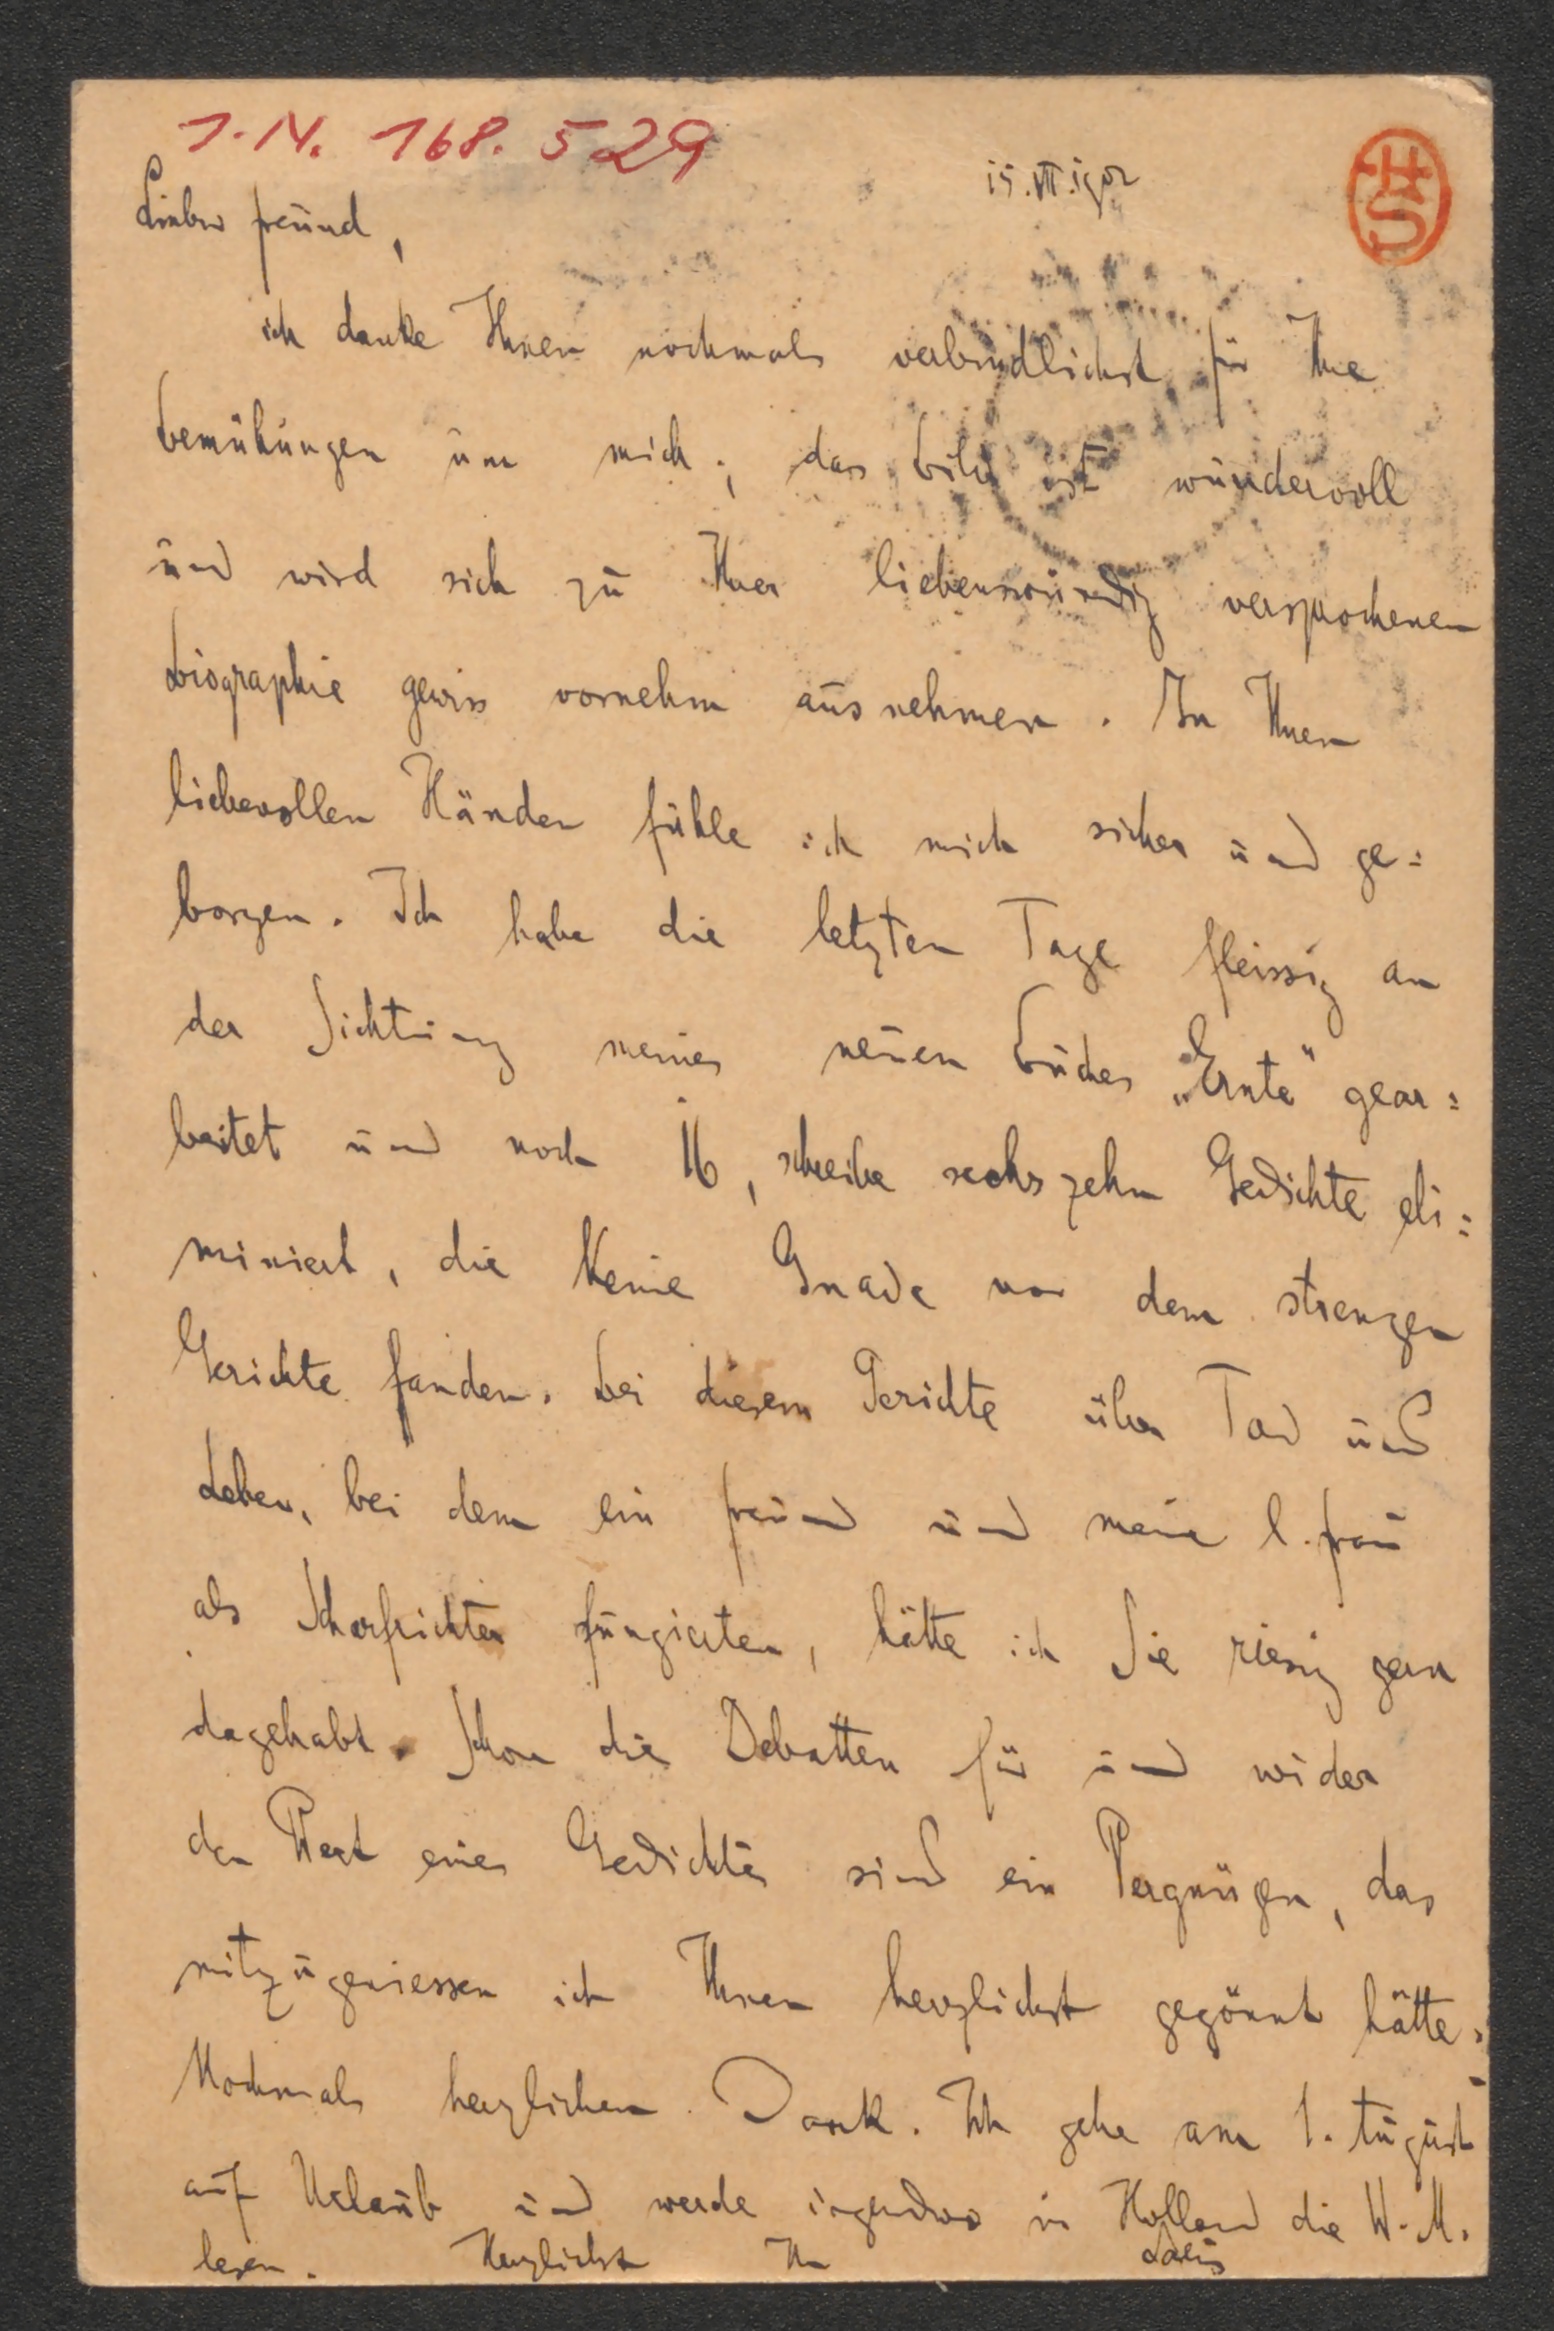 I.N. 168.529
15.VII.1902
HS
Lieber Freund,
ich danke Ihnen nochmals verbindlichst für Ihre
Bemühungen um mich; das Bild ist wundervoll
und wird sich zu Ihrer liebenswürdig versprochenen
Biographie gewiss vornehm ausnehmen. In Ihren
liebevollen Händen fühle ich mich sicher und ge=
borgen. Ich habe die letzten Tage fleissig an
der Sichtung meines neuen Buches „Ernte" gear=
beitet und noch 16, schreibe sechszehn Gedichte eli=
miniert, die keine Gnade vor dem strengen
Gerichte fanden. Bei diesem Gerichte über Tod und
Leben, bei dem ein Freund und meine l. Frau
als Scharfrichter fungierten, hätte ich Sie riesig gern
dagehabt. Schon die Debatten für und wider
den Wert eines Gedichtes sind ein Vergnügen, das
mitzugeniessen ich Ihnen herzlichst gegönnt hätte.
Nochmals herzlichen Dank. Ich gehe am 1. August
auf Urlaub und werde irgendwo in Holland die W.M.
lesen. Herzlichst Ihr